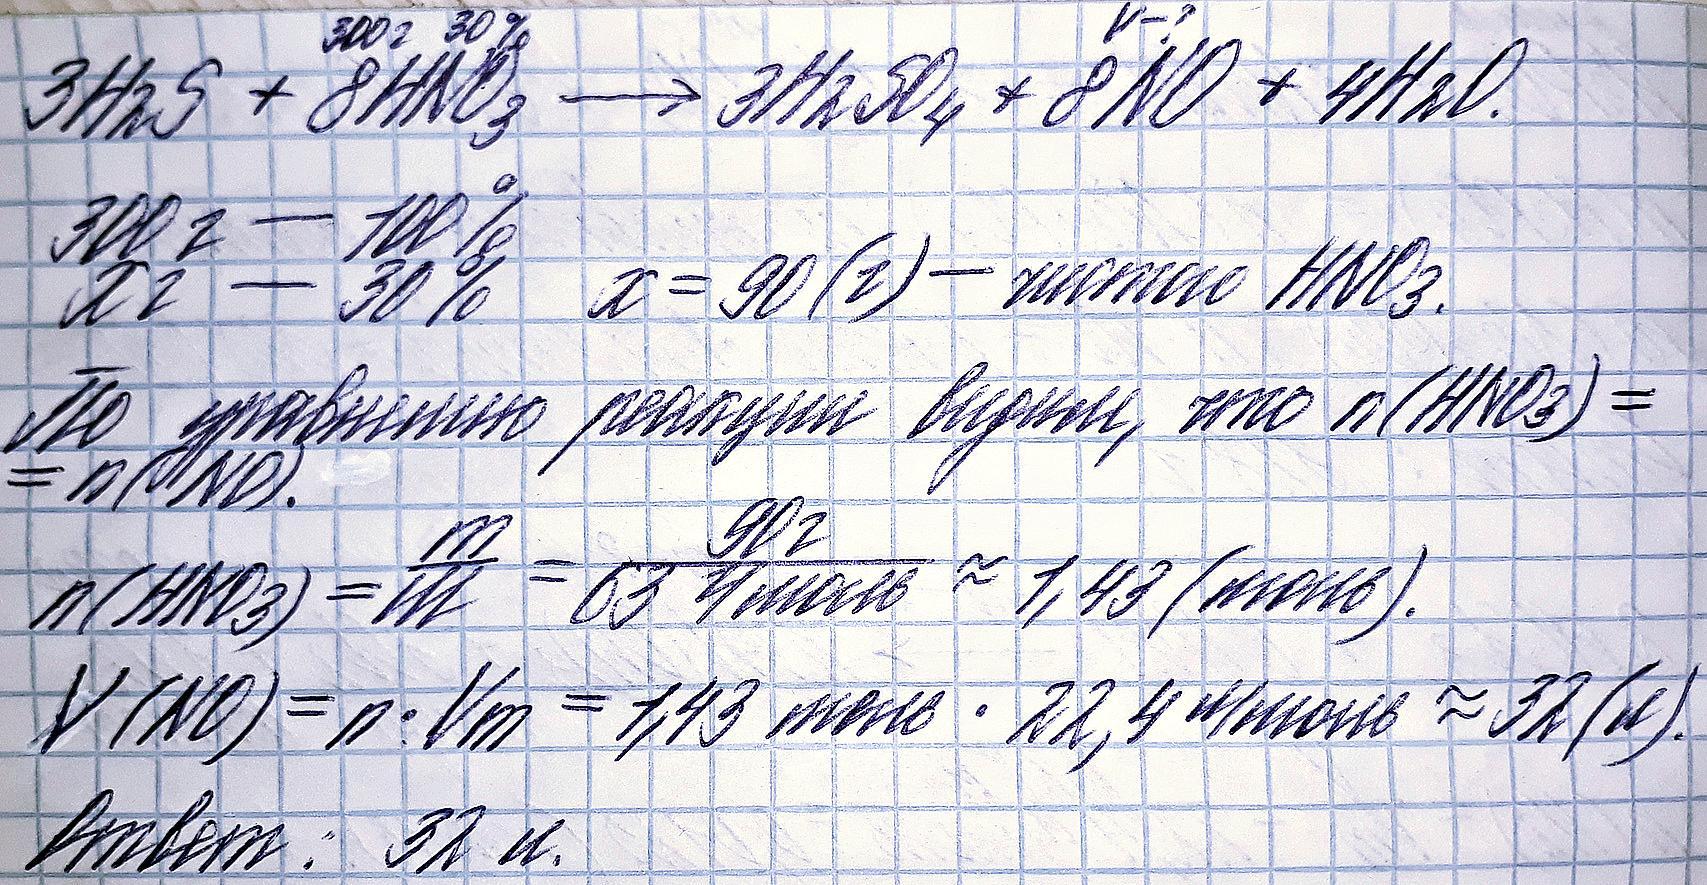 300г 30% V-?
3H2S + 8HNO3 → 3H2SO4 + 8NO + 4H2O.
300 г — 100%
xг — 30% x = 90 (г) — чистого HNO3.
По уравнению реакции видим, что n(HNO3) =
= n(NO).
n(HNO3) = m/M = 90г/63 г/моль ≈ 1,43 (моль).
V(NO) = n·Vm = 1,43 моль · 22,4 л/моль ≈ 32 (л).
Ответ: 32 л.